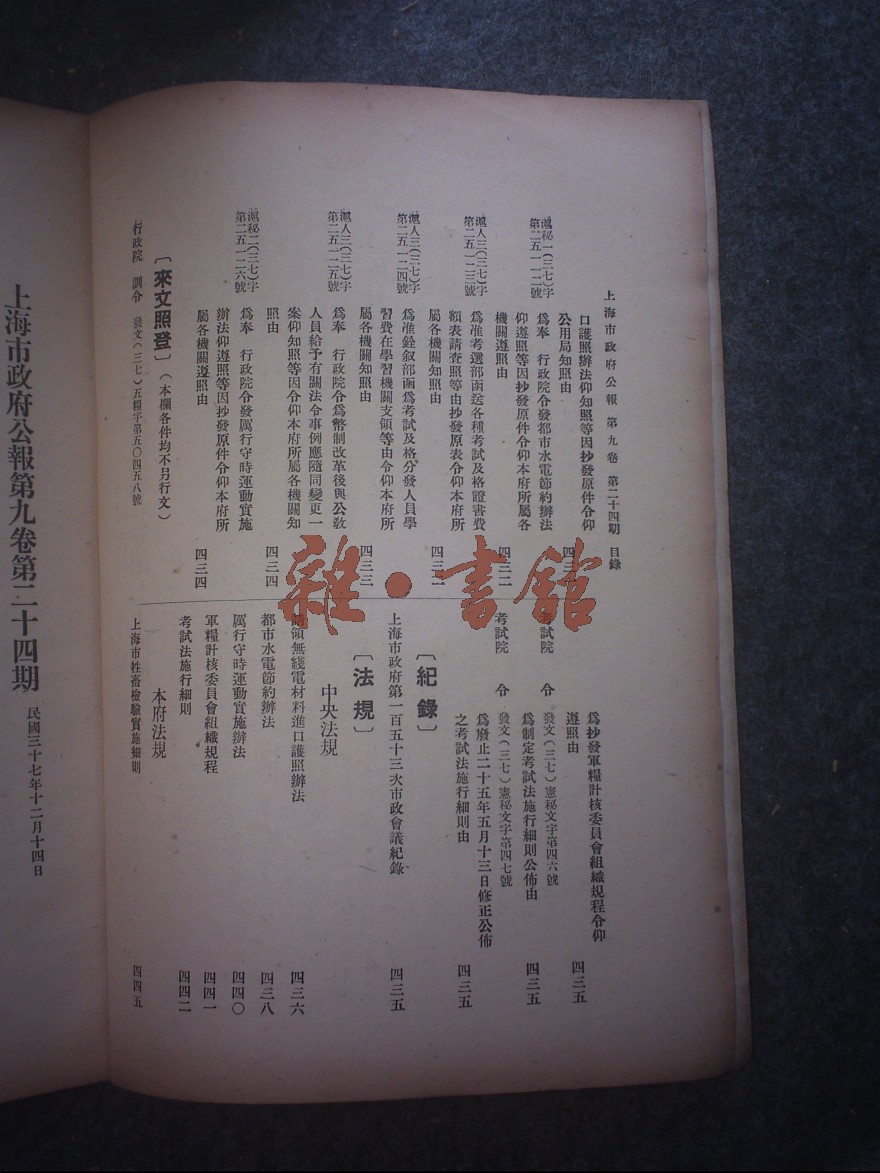 上海市政府公報 第九卷 第二十四期 目錄
口護照辦法仰知照等因抄發原件令仰
公用局知照由
滬秘一(三七)字
第二五一一二號
為奉 行政院令發都市水電節約辦法
仰遵照等因抄發原件令仰本府所屬各
機關遵照由
四三二
滬人三(三七)字
第二五一二三號
為准考選部函送各種考試及格證書費
額表請查照等由抄發原表令仰本府所
屬各機關知照由
滬人三(三七)字
第二五一二四號
為准銓叙部函為考試及格分發人員學
習費在學習機關支領等由令仰本府所
屬各機關知照由
四三三
滬人三(三七)字
第二五一二五號
為奉 行政院令為幣制改革後與公敎
人員給予有關法令事例應隨同變更一
案仰知照等因令仰本府所屬各機關知
照由
四三四
滬秘二(三七)字
第二五一二六號
為奉 行政院令發厲行守時運動實施
辦法仰遵照等因抄發原件令仰本府所
屬各機關遵照由
四三四
〔來文照登〕(本欄各件均不另行文)
行政院 訓令 發文(三七)五糧字第五〇四五八號
為抄發軍糧計核委員會組織規程令仰
遵照由
四三五
考試院 令 發文(三七)憲秘文字第四六號
為制定考試法施行細則公佈由
四三五
考試院 令 發文(三七)憲秘文字第四七號
為廢止二十五年五月十三日修正公佈
之考試法施行細則由
四三五
〔紀錄〕
上海市政府第一百五十三次市政會議紀錄
四三五
〔法規〕
中央法規
領無綫電材料進口護照辦法
四三六
都市水電節約辦法
四三八
厲行守時運動實施辦法
四四〇
軍糧計核委員會組織規程
四四一
考試法施行細則
四四二
本府法規
上海市牲畜檢驗實施細則
四四五
上海市政府公報第九卷第二十四期
民國三十七年十二月十四日
雜·書館